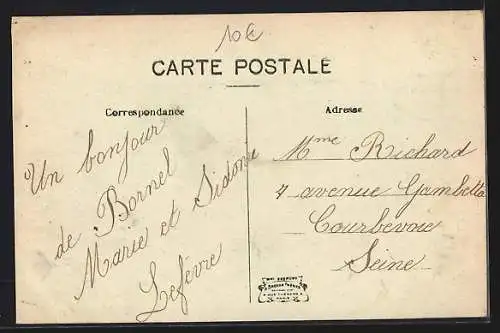 10€
CARTE POSTALE
Correspondance
Adresse
Un bonjour
de Bornel
Marie et Sidonie
Lefèvre
Mme Richard
7 avenue Gambetta
Courbevoie
Seine